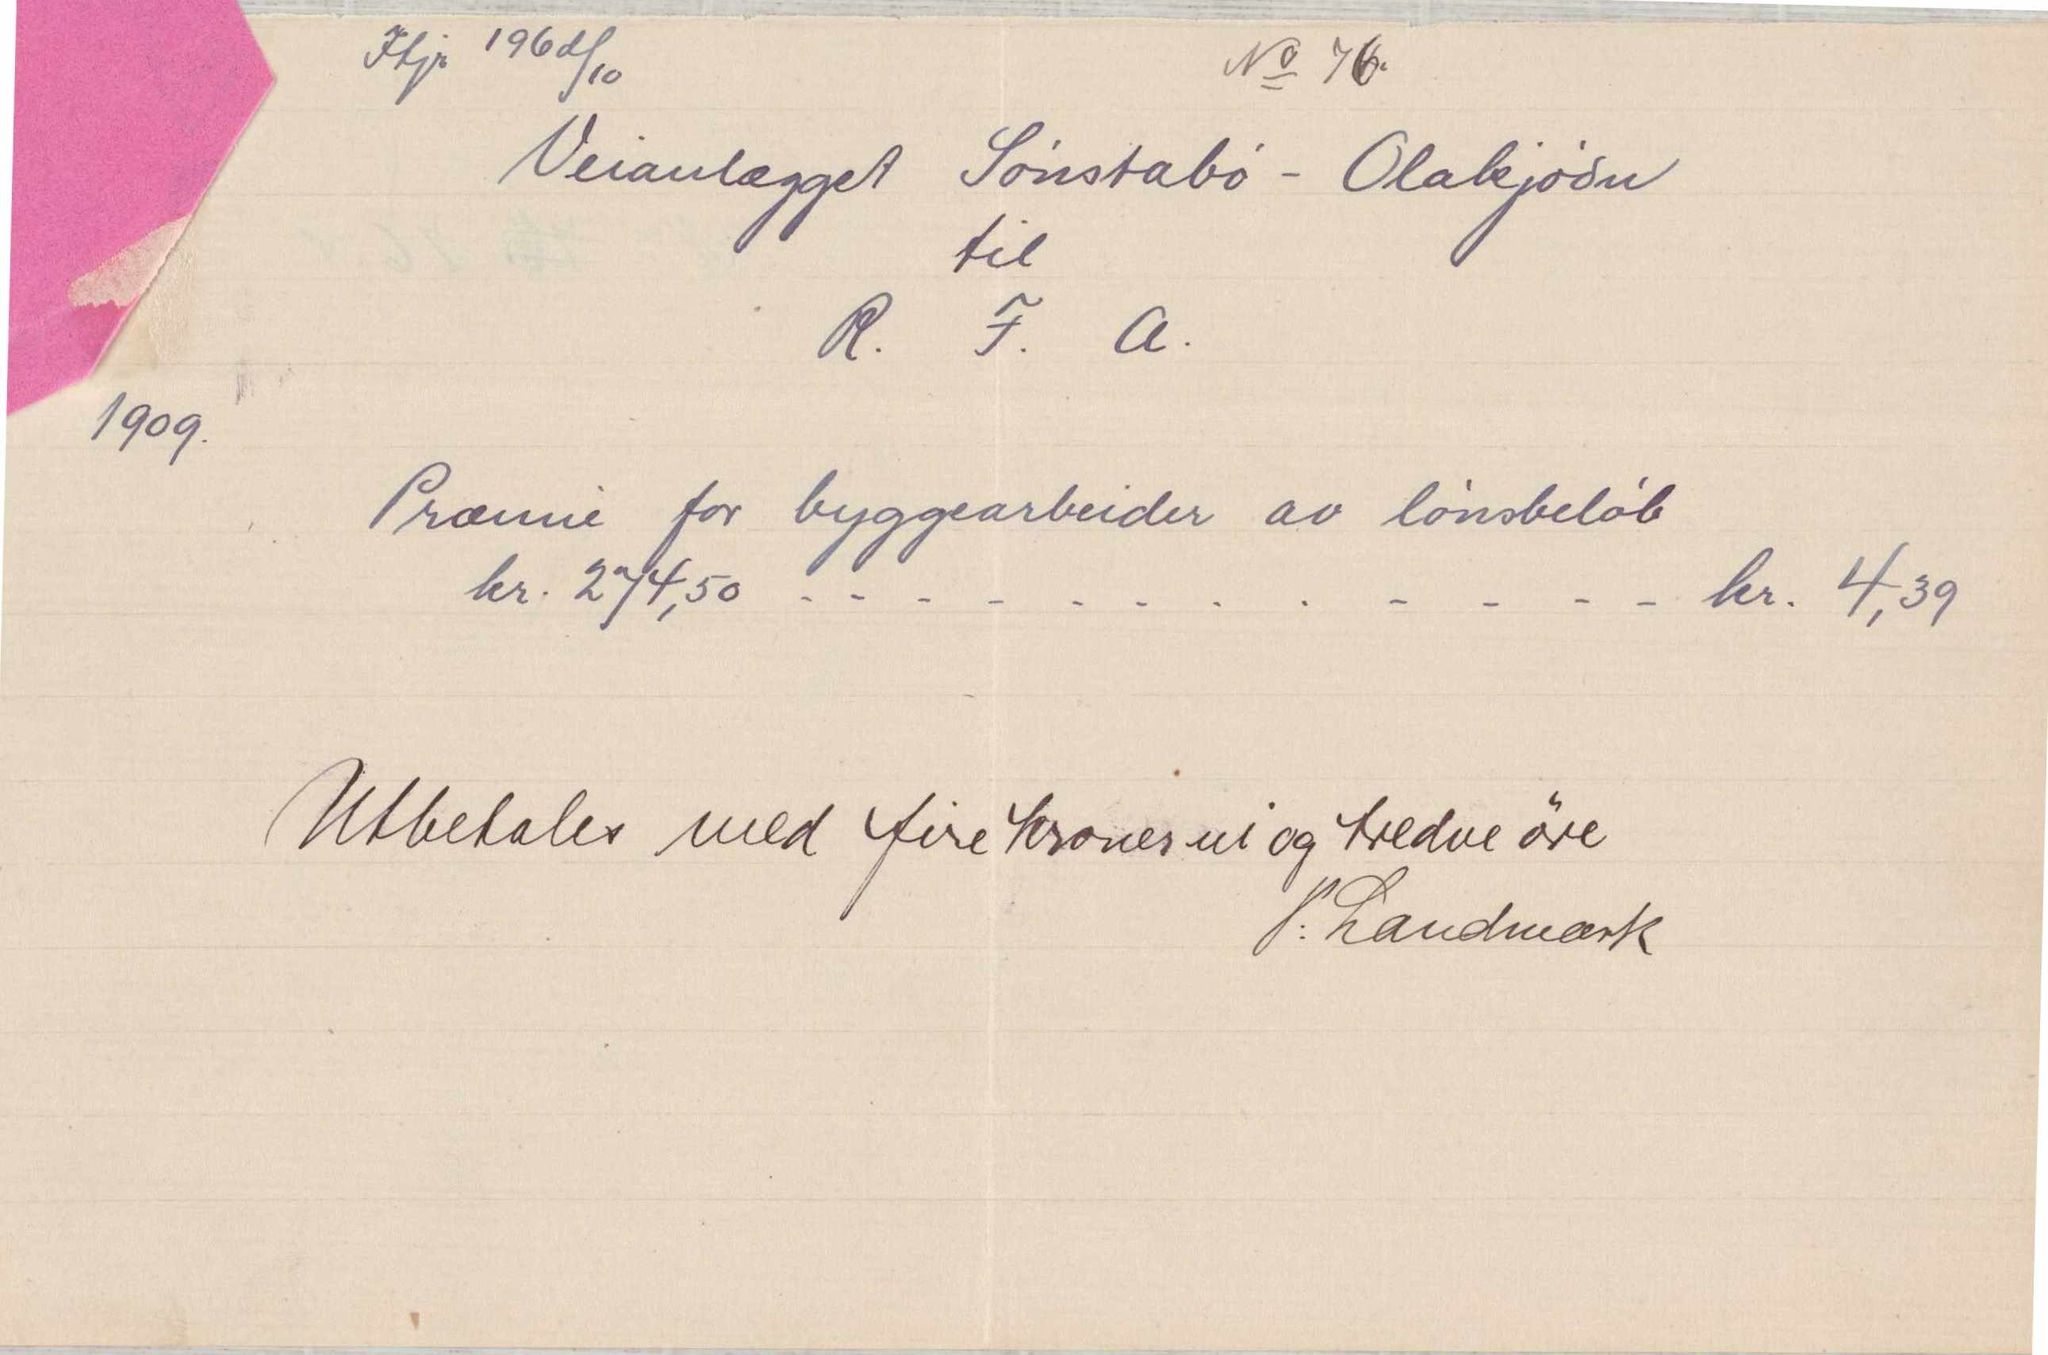 Ftjr 196d/10 No 76.
Veianlægget Sónstabó - Olakjóðn
til
R. F. A.
1909.
Præmie for byggearbeider av lónsbelób
kr. 274,50 - - - - - - - - - - - - kr. 4,39
Utbetales med fire kroner ni og tredve öre
P: Landmark